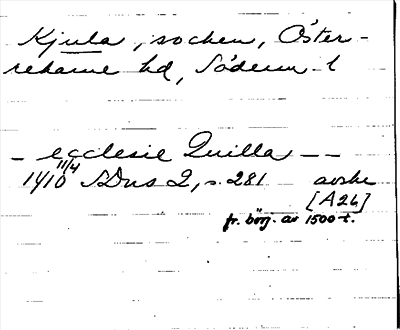 Kjula, socken, Öster-
rekarne hd, Söderm. l
- ecclesie Quilla --
1410 11/4 SDns 2, s. 281 avskr
[A26]
fr. börj. av 1500-t.